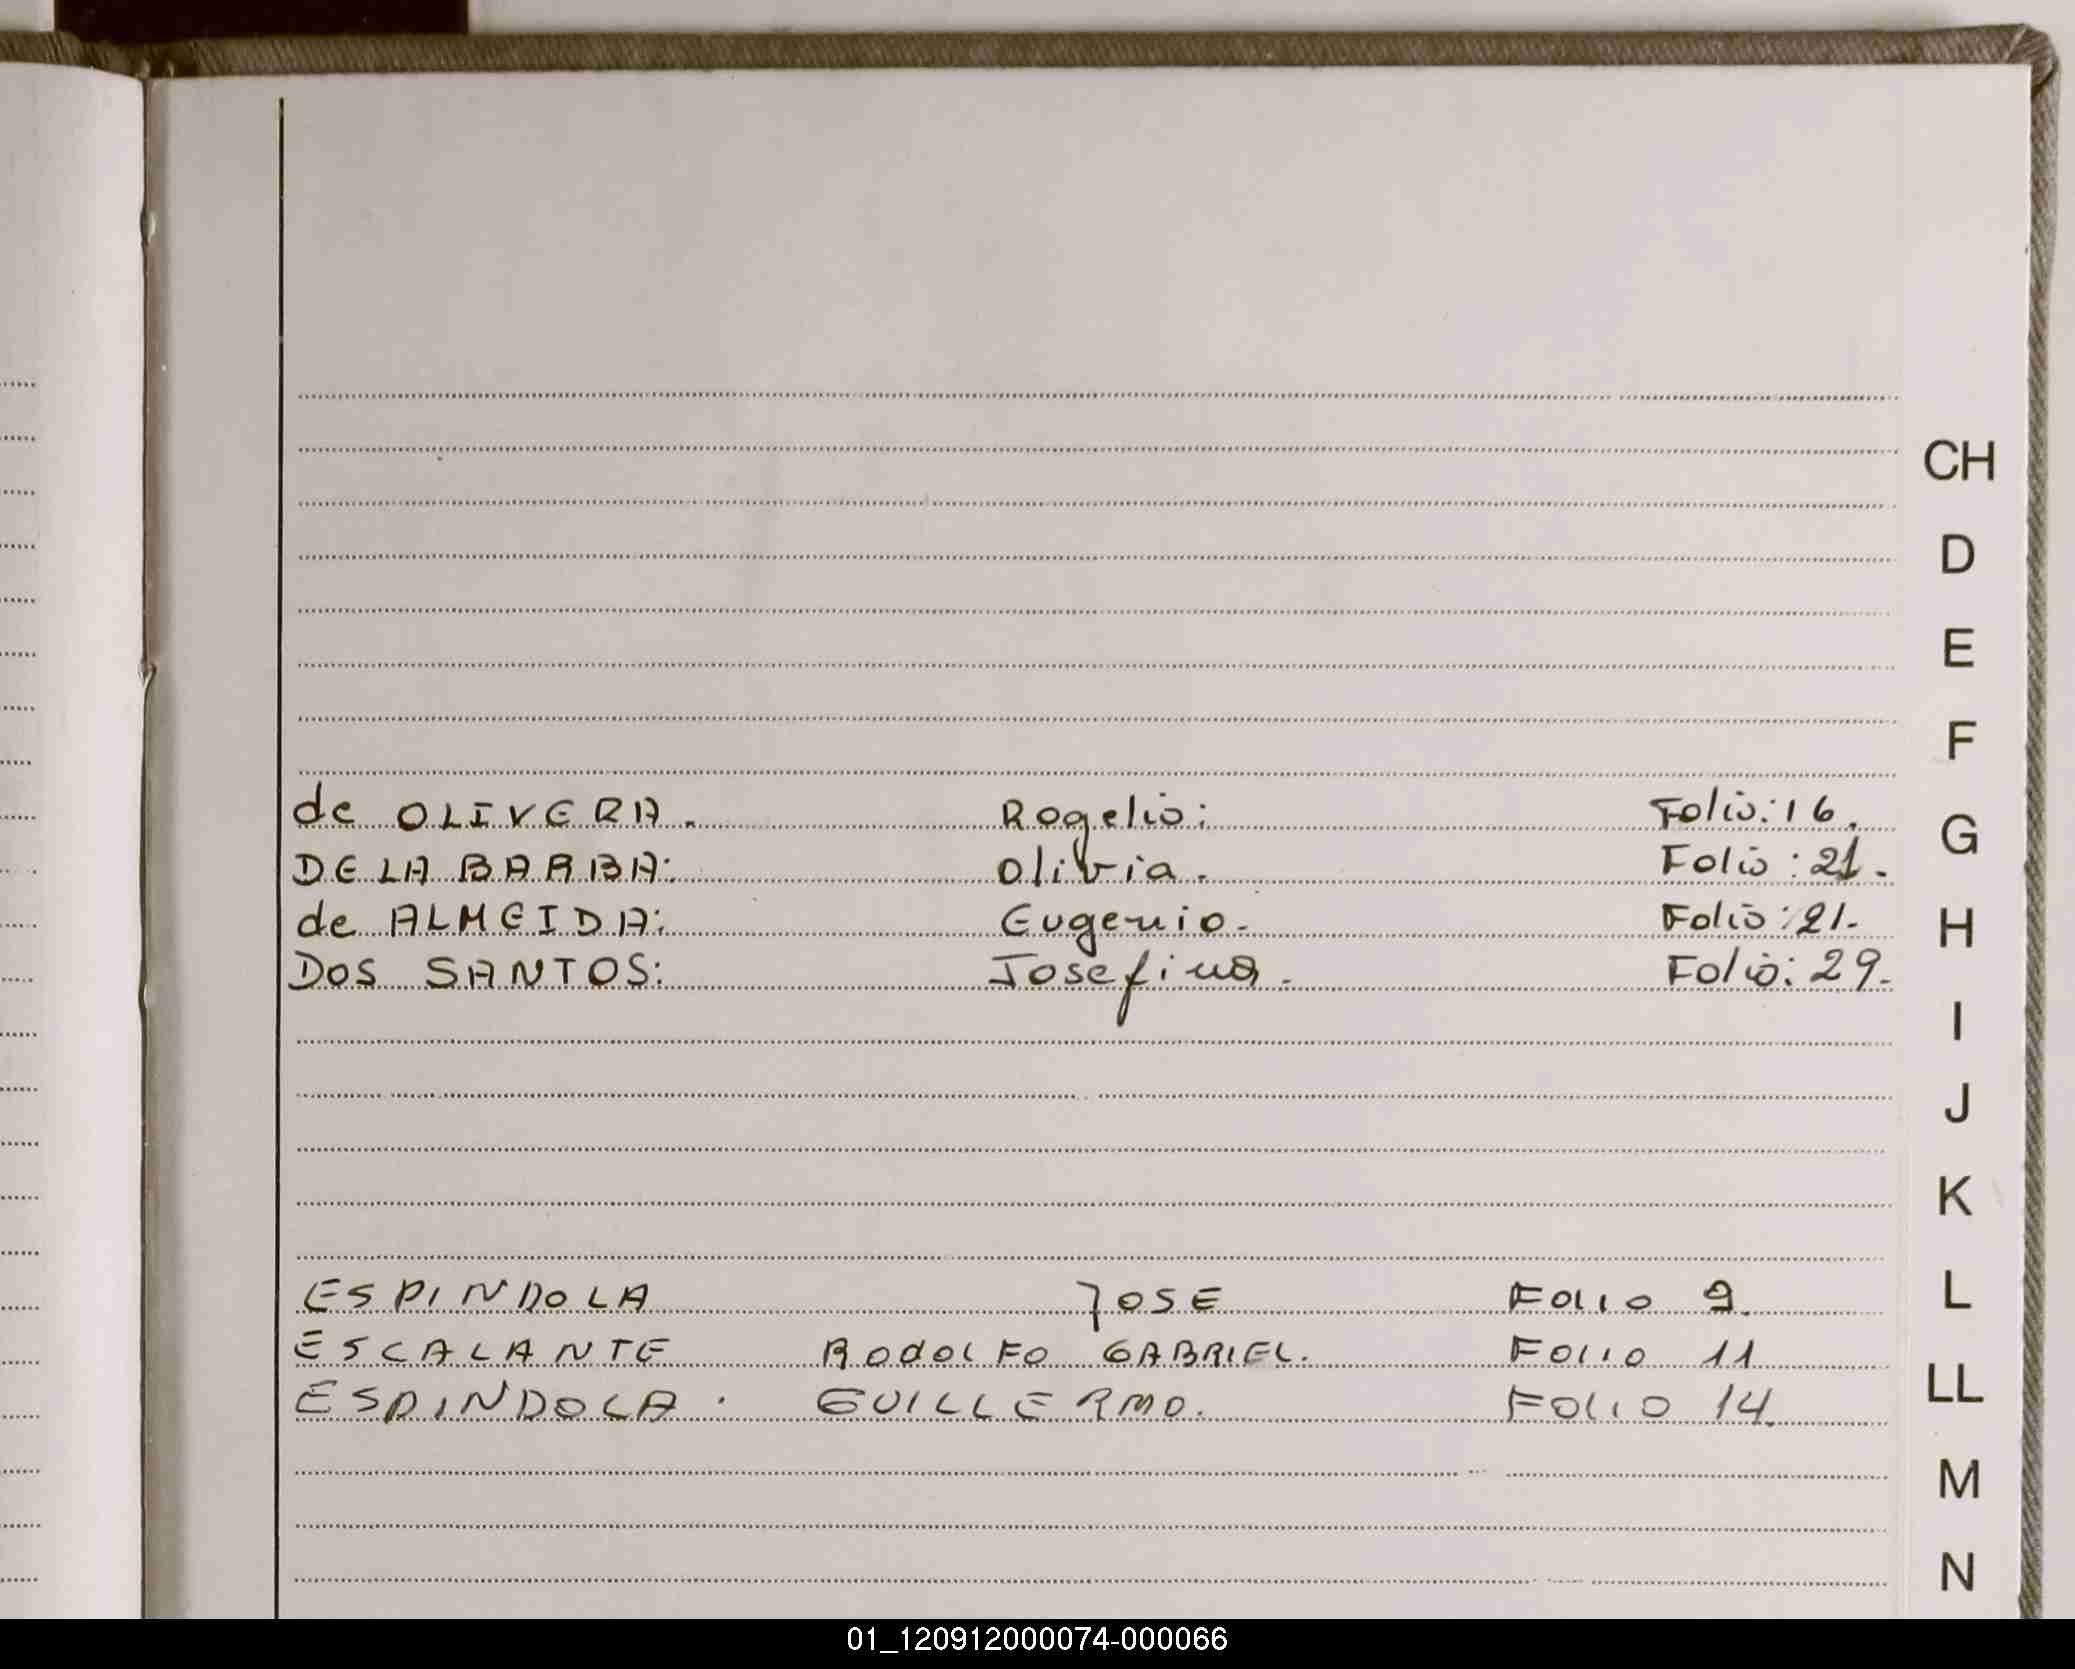 CH
D
E
F
de OLIVERA. Rogelio: Folio: 16.
G
DE LA BARBA: Olivia. Folio: 21.
de ALMEIDA: Eugenio. Folio: 21.
H
DOS SANTOS: Josefina. Folio: 29.
I
J
K
ESPINDOLA JOSE FOLIO 9.
L
ESCALANTE RODOLFO GABRIEL. FOLIO 11
LL
ESPINDOLA. GUILLERMO. FOLIO 14.
M
N
01_120912000074-000066